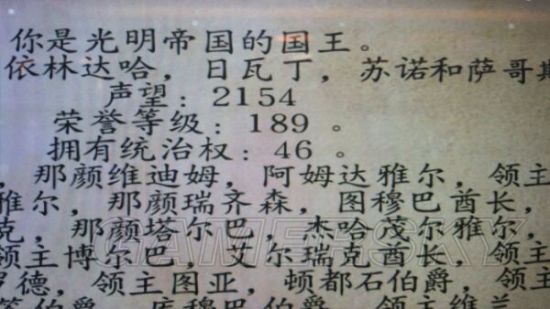 你是光明帝国的国王。
依林达哈，日瓦丁，苏诺和萨哥斯
声望：2154
荣誉等级：189 。
拥有统治权：46 。
，那颜维迪姆，阿姆达雅尔，领主
雅尔，那颜瑞齐森，图穆巴酋长，
克，那颜塔尔巴，杰哈茂尔雅尔，
领主博尔巴，艾尔瑞克酋长，领主
罗德，领主图亚，顿都石伯爵，领主
伯爵，库穆巴伯爵，领主维兰
GAMERSKY